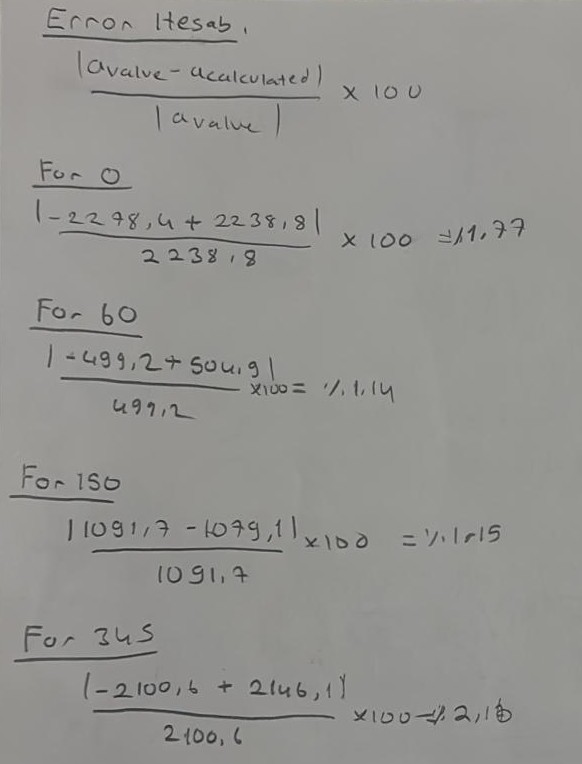 Error Hesab.
|avalve - acalculated| / |avalve| × 100
For 0
|-2278,4 + 2238,8| / 2238,8 × 100 = %1,77
For 60
|-499,2 + 504,9| / 499,2 ×100 = %1,14
For 150
|1091,7 - 1079,1| / 1091,7 ×100 = %1,15
For 345
|-2100,6 + 2146,1| / 2100,6 ×100 = %2,16